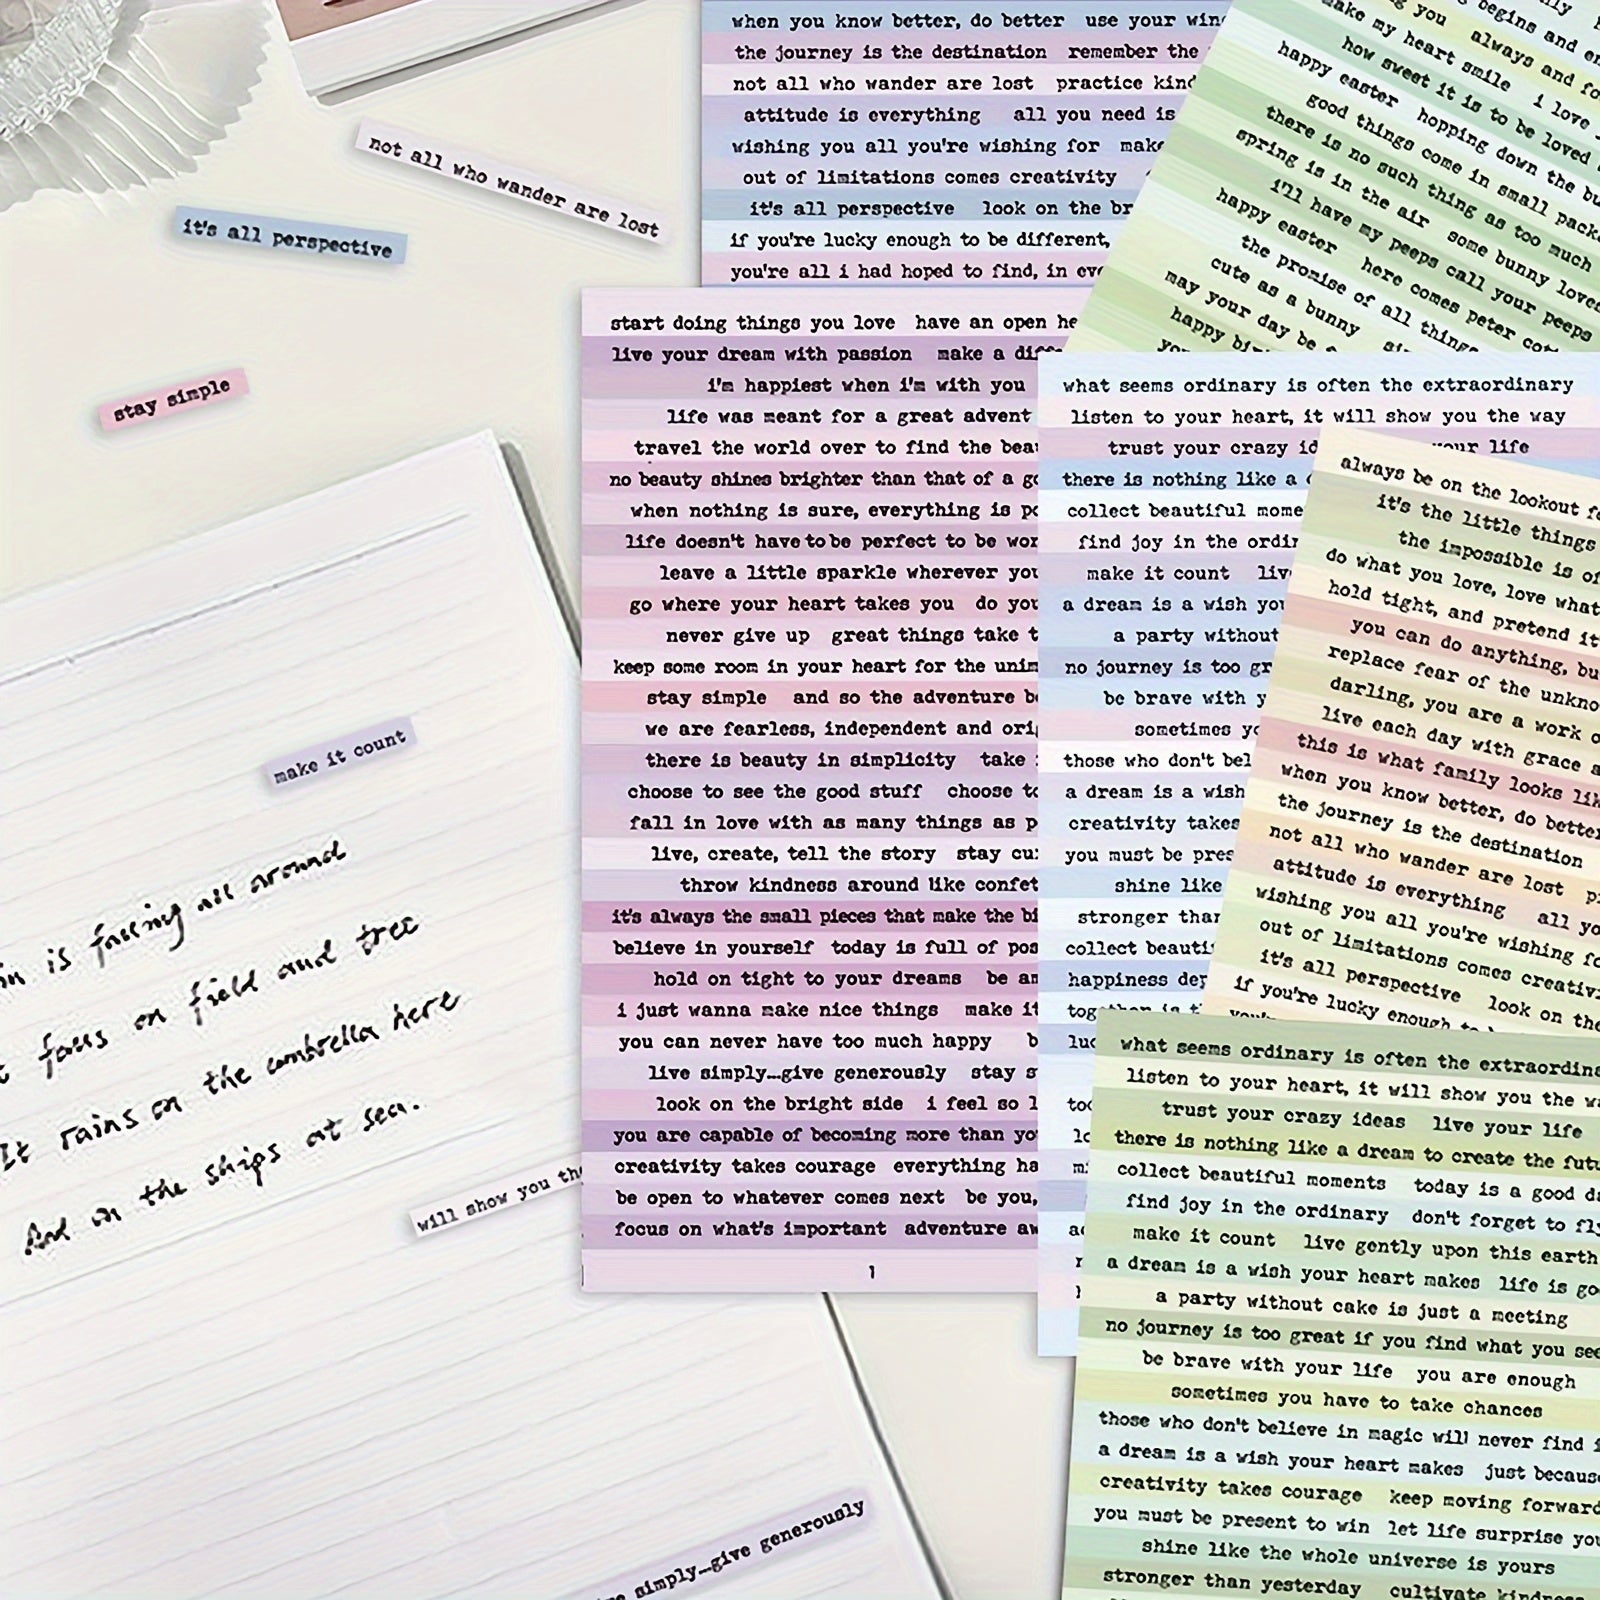 not all who wander are lost
it's all perspective
stay simple
make it count
is falling all around
on field and tree
It rains on the umbrella here
And on the ships at sea.
will show you the
simply...give generously
when you know better, do better use your
the journey is the destination remember the
not all who wander are lost practice
attitude is everything all you need is
wishing you all you're wishing for
out of limitations comes creativity
it's all perspective look on the
if you're lucky enough to be different,
you're all i had hoped to find, in
you always and
make my heart smile i love
how sweet it is to be loved
happy easter hopping down the
good things come in small
there is no such thing as too much
spring is in the air some bunny loves
i'll have my peeps call your peeps
happy easter here comes peter
the promise of all things
cute as a bunny
may your day be
happy
start doing things you love have an open
live your dream with passion make a
i'm happiest when i'm with you
life was meant for a great
travel the world over to find the
no beauty shines brighter than that of a
when nothing is sure, everything is
life doesn't have to be perfect to be
leave a little sparkle wherever
go where your heart takes you do
never give up great things take
keep some room in your heart for the
stay simple and so the adventure
we are fearless, independent and
there is beauty in simplicity take
choose to see the good stuff choose
fall in love with as many things as
live, create, tell the story stay
throw kindness around like
it's always the small pieces that make the
believe in yourself today is full of
hold on tight to your dreams be
i just wanna make nice things make
you can never have too much happy
live simply...give generously stay
look on the bright side i feel so
you are capable of becoming more than
creativity takes courage everything
be open to whatever comes next be you,
focus on what's important adventure
1
what seems ordinary is often the extraordinary
listen to your heart, it will show you the way
trust your crazy your life
there is nothing like a
collect beautiful
find joy in the
make it count
a dream is a wish
a party without
no journey is too
be brave with
sometimes
those who don't
a dream is a wish
creativity takes
you must be
shine like
stronger than
collect
happiness
together is
always be on the lookout
it's the little things
the impossible is
do what you love, love what
hold tight, and pretend
you can do anything,
replace fear of the
darling, you are a work
live each day with grace
this is what family looks
when you know better, do better
the journey is the destination
not all who wander are lost
attitude is everything all
wishing you all you're wishing
out of limitations comes
it's all perspective look on the
if you're lucky enough to
what seems ordinary is often the
listen to your heart, it will show you the
trust your crazy ideas live your life
there is nothing like a dream to create the
collect beautiful moments today is a good
find joy in the ordinary don't forget to
make it count live gently upon this earth
a dream is a wish your heart makes life is
a party without cake is just a meeting
no journey is too great if you find what you
be brave with your life you are enough
sometimes you have to take chances
those who don't believe in magic will never find
a dream is a wish your heart makes just because
creativity takes courage keep moving forward
you must be present to win let life surprise you
shine like the whole universe is yours
stronger than yesterday cultivate kindness